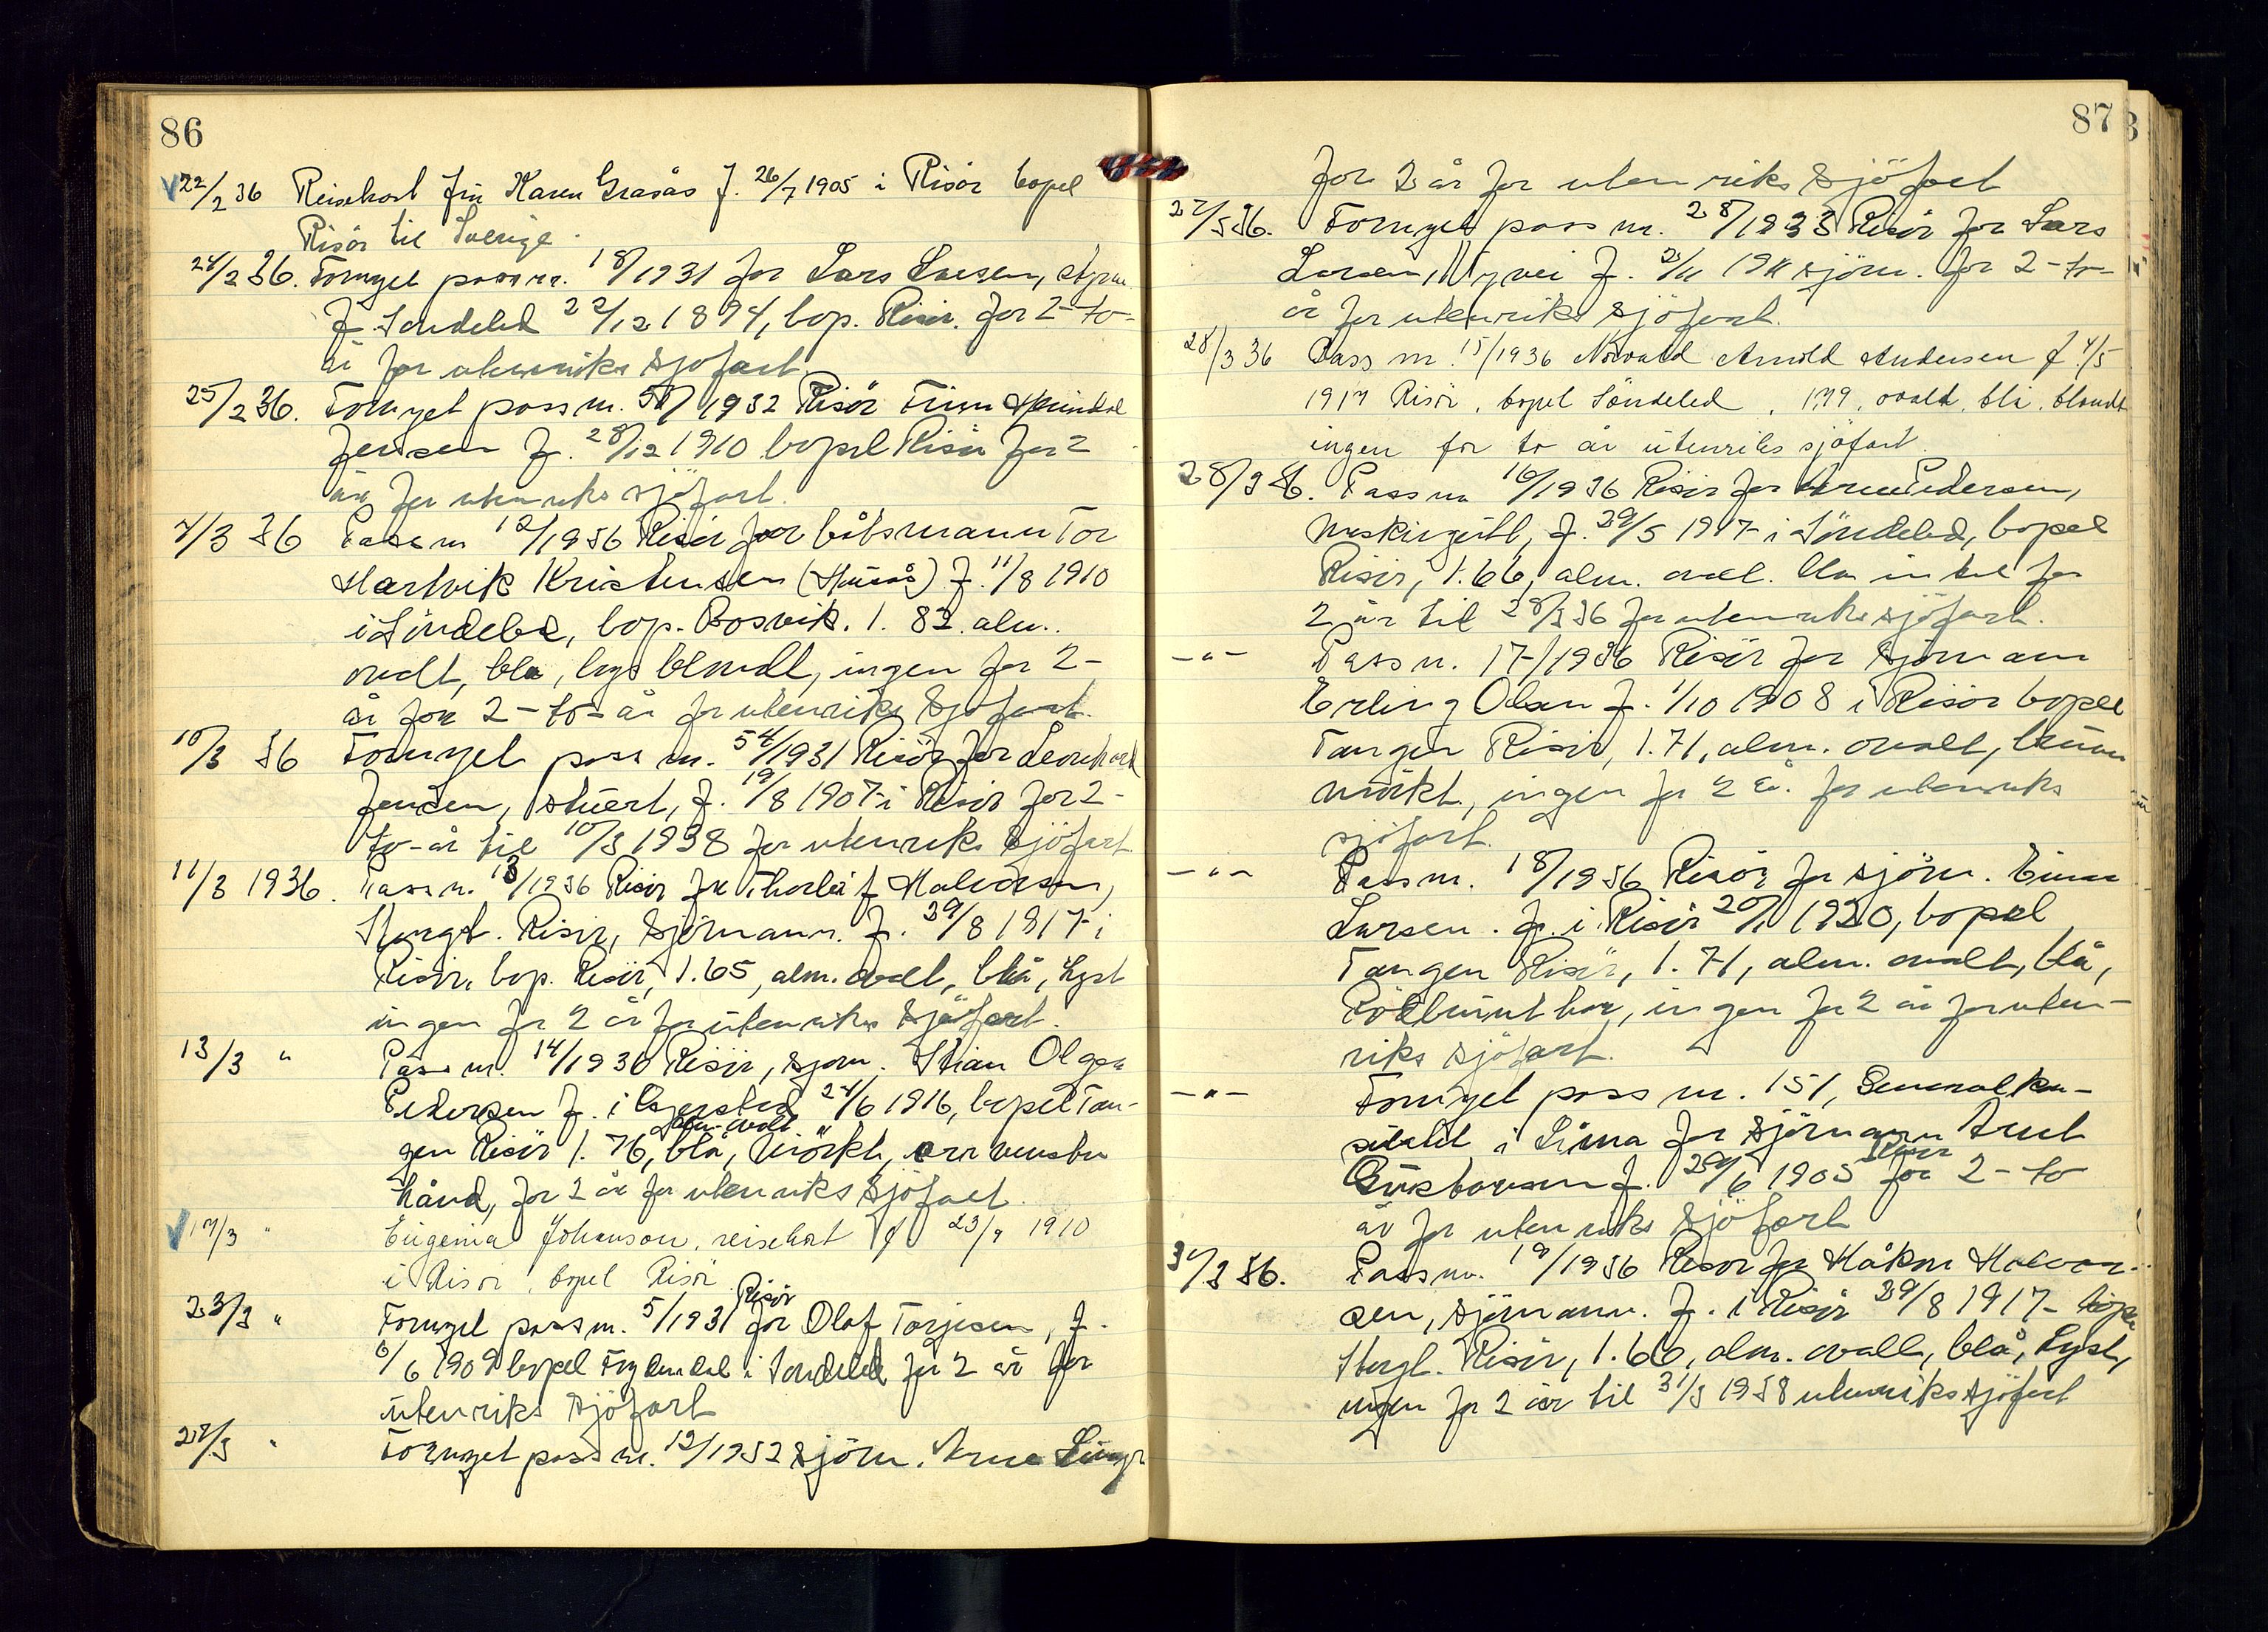 86
22/2 36 Reisekort fru Karen Grasås f. 26/7 1905 i Risör bopel
Risör til Sverige.
24/2 36. Fornyet pass nr. 18/1931 for Lars Larsen, styrm
f. Söndeled 22/12 1894, bop. Risör. for 2-to-
år for utenriks sjöfart.
25/2 36. Fornyet pass nr. 1932 Risör Finn
Jensen f. 28/12 1910 bopel Risör for 2
år for utenriks sjöfart.
4/3 36 Pass nr 12/1936 Risör for båtsmann Tor
Hartvik Kristensen f. 11/8 1910
i Söndeled, bop. Bosvik. 1. 82. alm.
ovalt, blå, lys blondt, ingen for 2-
år for 2-to-år for utenriks sjöfart.
10/3 36 Fornyet pass nr. 54/1931 Risör for Leonhard
Jensen, stuert, f. 19/8 1907 i Risör for 2-
to-år til 10/3 1938 for utenriks sjöfart
11/3 1936. Pass nr. 13/1936 Risör for Thorleif Halvorsen,
Risör, sjömann. f. 39/8 1917 i
Risör, bop. Risör, 1.65, alm. ovalt, blå, lyst
ingen for 2 år for utenriks sjöfart.
13/3 " Pass nr. 14/1936 Risör, sjöm. Stian Olgar
Pedersen f. i 24/6 1916, bopel Tan-
alm. ovalt
gen Risör 1. 76, blå, mörkt, arr venstre
hånd, for 2 år for utenriks sjöfart.
17/3 " Eugenia Johanson, reisekort f 23/9 1910
i Risör, bopel Risör
Risör
23/3 " Fornyet pass nr. 5/1931 for Olaf Torjesen, f.
6/6 1909 bopel i Söndeled for 2 år for
utenriks sjöfart
27/3 " Fornyet pass nr. 12/1932 sjöm. Arne
87
for 2 år for utenriks sjöfart
27/3 36. Fornyet pass nr. 28/1933 Risör for Lars
Larsen, Nyvei f. 23/11 1911 sjöm. for 2-to-
år for utenriks sjöfart.
28/3 36 Pass nr. 15/1936 Norvald Arnold Andersen f 4/5
1917 Risör, bopel Söndeled, 1.79, ovalt, blå, blondt
ingen for to år utenriks sjöfart.
28/3 36. Pass nr 16/1936 Risör for Arne Pedersen,
maskingutt, f. 29/5 1917 i Söndeled, bopel
Risör, 1.66, alm. oval. blå for
2 år til 28/3 36 for utenriks sjöfart.
-"- Pass nr. 17/1936 Risör for sjömann
Erling Olsen f. 1/10 1908 i Risör bopel
Tangen Risör, 1.71, alm. ovalt, brune
mörkt, ingen for 2 år for utenriks
sjöfart.
-"- Pass nr. 18/1936 Risör for sjöm. Einar
Larsen. f. i Risör 20/1 1920, bopel
Tangen Risör, 1. 71, alm. ovalt, blå,
rödbrunt hår, ingen for 2 år for uten-
riks sjöfart.
-"- Fornyet pass nr. 151, Generalkon-
sulatet i Lima for sjömann Arnt
Risör
Gustavsen f. 29/6 1905 for 2-to
år for utenriks sjöfart
31/3 36. Pass nr. 19/1936 Risör for Håkon Halvor-
sen, sjömann. f. i Risör 39/8 1917 bopel
Risör, 1.66, alm. ovalt, blå, lyst,
ingen for 2 år til 31/3 1938 utenriks sjöfart